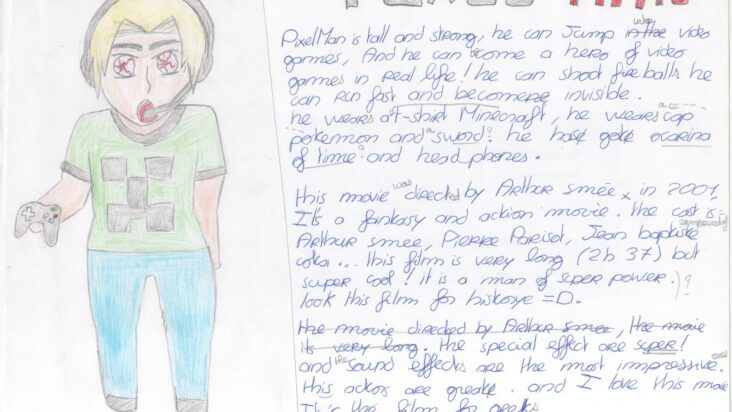 PixelMan is tall and strong, he can Jump in the into video
games, And he can become a hero of video
games in real life! he can shoot fireballs he
can run fast and becomere invisible.
he wears a t-shirt Minecraft, he wears cap
pokemon and a sword? he has gote ocarina
of time? and headphones.
this movie was directed by Arthur smée x in 2001,
It's a fantasy and action movie. the cast is
Arthur smee, Pierre Pariset, Jean baptiste
... this film is very long (2h 37) but
super cool! it is a man of super power.)?
look this film for =D.
the movie directed by Arthur smée, the movie
its very long. the special effect are super!
and the sound effects are the most impressive.
this actors are greate. and I love this movie
It's the film for geeks